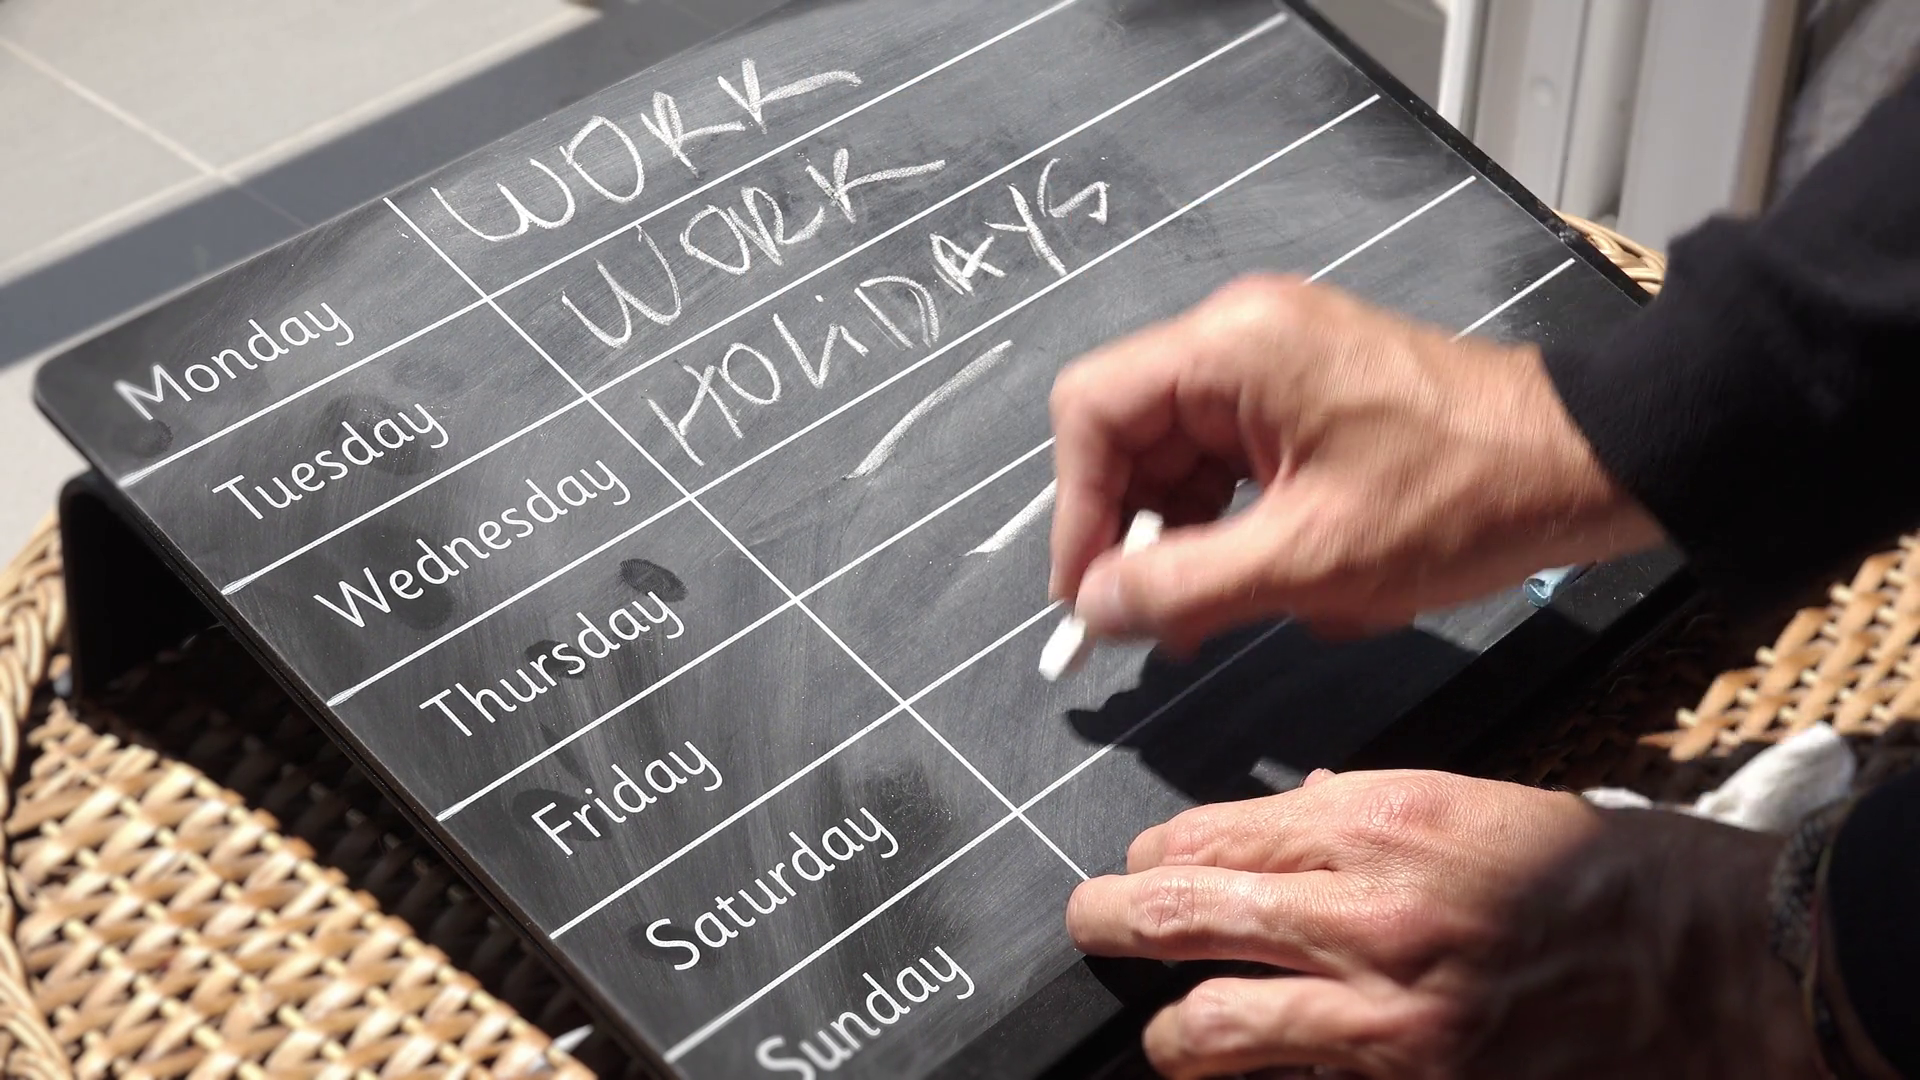 Monday WORK
Tuesday WORK
Wednesday HOLiDAYS
Thursday
Friday
Saturday
Sunday